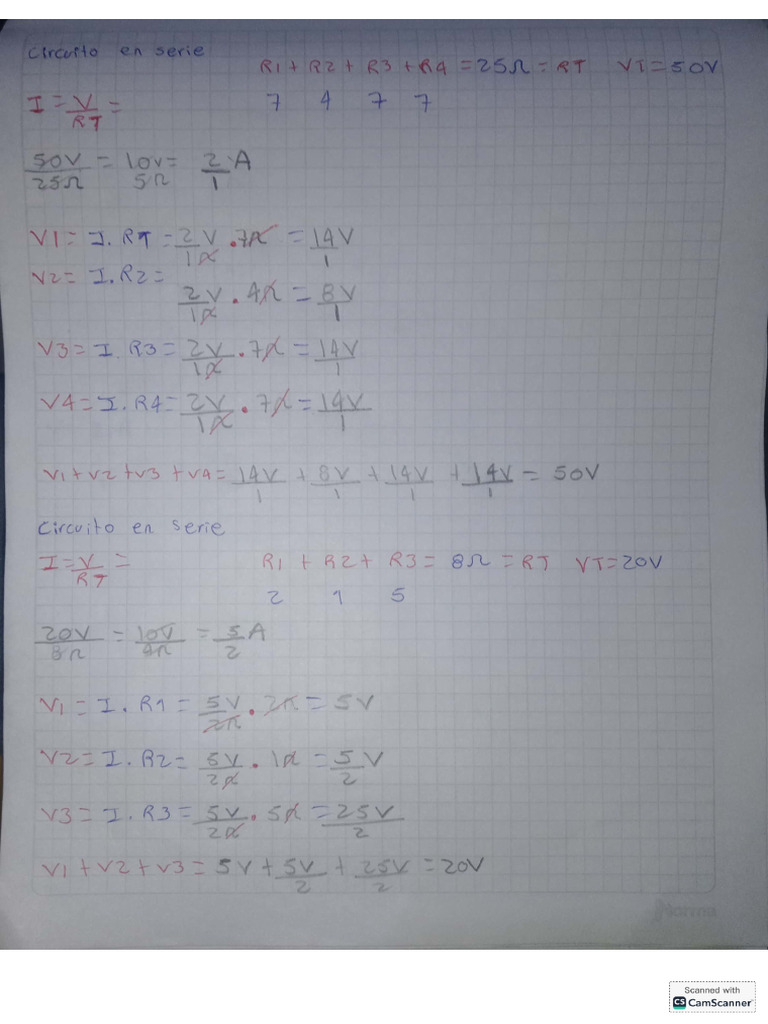 Circuito en serie
R1 + R2 + R3 + R4 = 25Ω = RT VT = 50V
I = V/RT = 7 4 7 7
50V/25Ω = 10V/5Ω = 2/1 A
V1 = I. RT = 2V/1Ω . 7Ω = 14V/1
V2 = I. R2 = 2V/1Ω . 4Ω = 8V/1
V3 = I. R3 = 2V/1Ω . 7Ω = 14V/1
V4 = I. R4 = 2V/1Ω . 7Ω = 14V/1
V1 + V2 + V3 + V4 = 14V/1 + 8V/1 + 14V/1 + 14V/1 = 50V
Circuito en serie
I = V/RT = R1 + R2 + R3 = 8Ω = RT VT = 20V
2 1 5
20V/8Ω = 10V/4Ω = 5/2 A
V1 = I. R1 = 5V/2Ω . 2Ω = 5V
V2 = I. R2 = 5V/2Ω . 1Ω = 5/2 V
V3 = I. R3 = 5V/2Ω . 5Ω = 25V/2
V1 + V2 + V3 = 5V + 5V/2 + 25V/2 = 20V
Norma
Scanned with
CS CamScanner